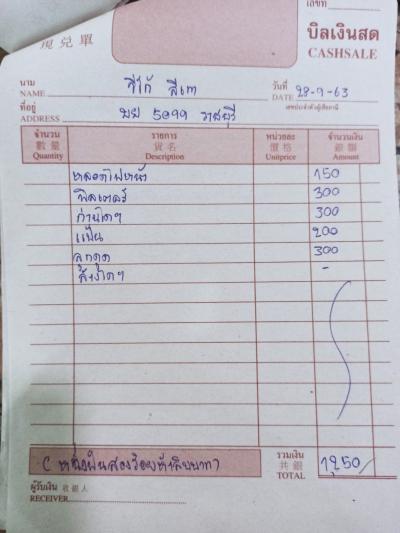 เลขที่
現兌單
บิลเงินสด
CASHSALE
นาม NAME วีโก้ สีเทา วันที่ DATE 28-9-63
ที่อยู่ ADDRESS บย 5099 ราชบุรี เลขประจำตัวผู้เสียภาษี
จำนวน รายการ หน่วยละ จำนวนเงิน
數量 貨名 價格 銀額
Quantity Description Unitprice Amount
หลอดไฟหน้า 150
ฟิลเตอร์ 300
300
แป้น 200
ลูกดูด 300
-
(หนึ่งพันสองร้อยห้าสิบบาท) รวมเงิน 共銀 TOTAL 1250
ผู้รับเงิน 收銀人
RECEIVER